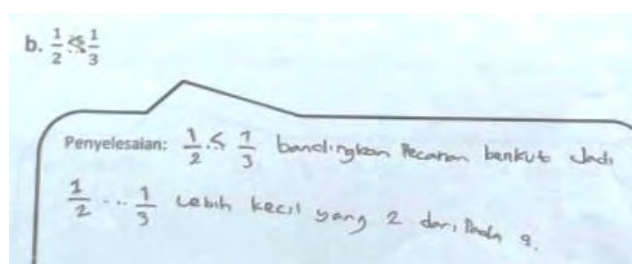 b. 1/2 ≤ 1/3
Penyelesaian: 1/2 .≤ 1/3 bandingkan Pecaran berikut Jadi
1/2 ... 1/3 Lebih kecil yang 2 dari Pada